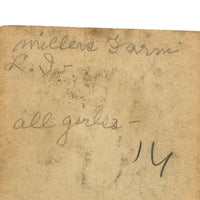 Millers Farm
L. I. -
all girls -
14